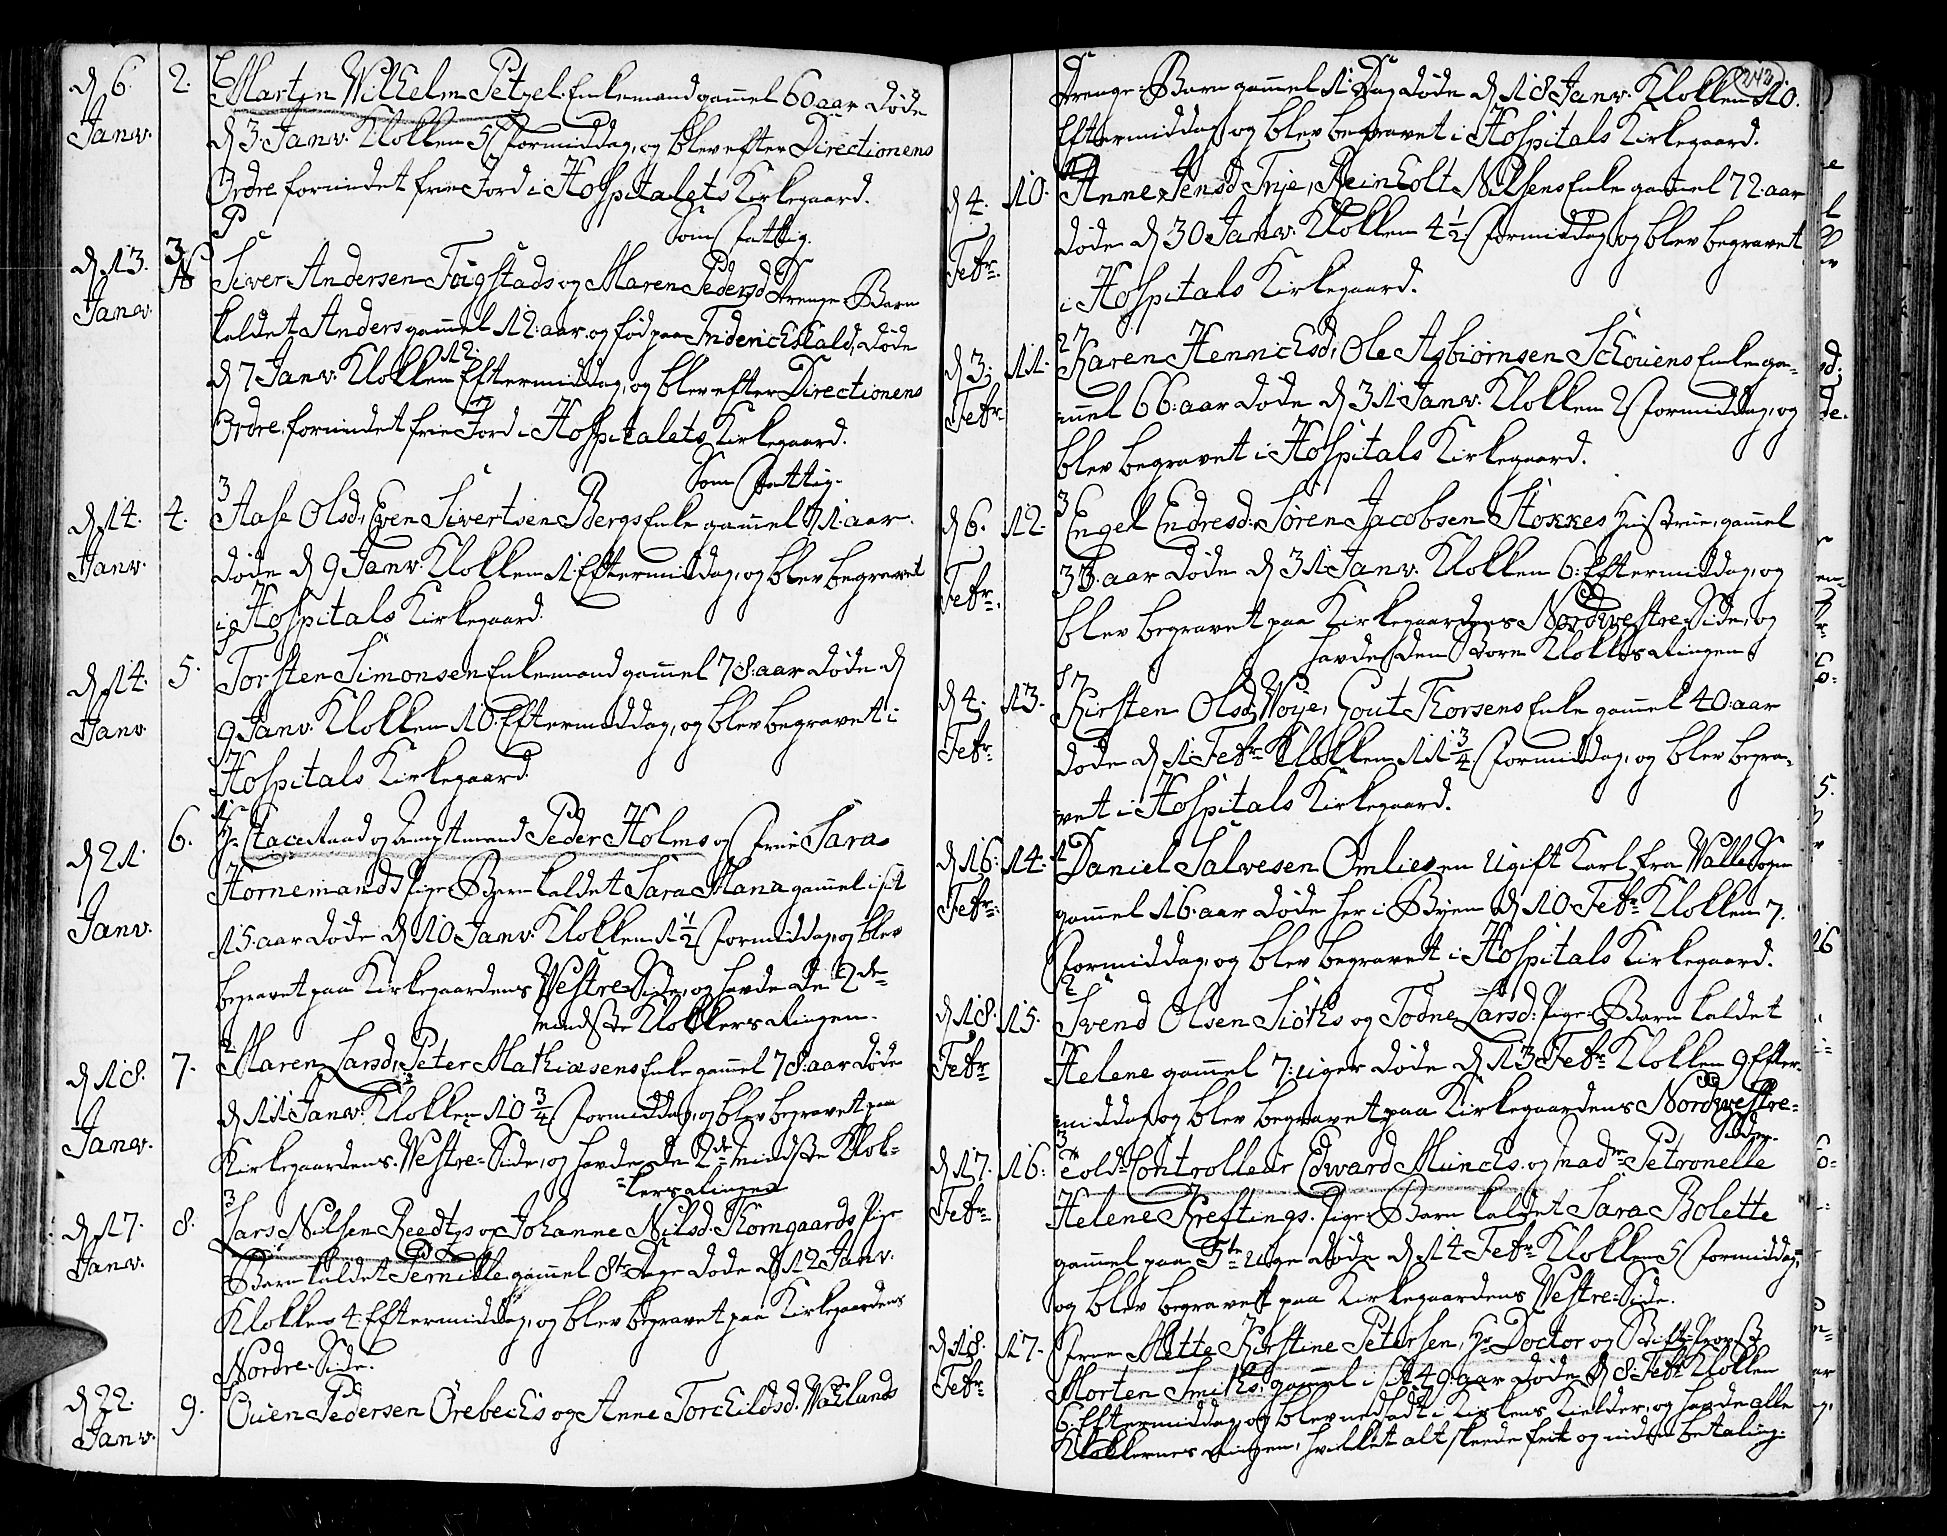 d 6. 2. Martin Wilhelm Petzel. Enkemand gam̄el 60 aar døde
Janv. d 3 Janv. Klokken 5 Formiddag, og blev efter Directionens
Ordre forundet frie Jord i Hospitalets Kirkegaard.
Som fattig.
d 13. 3 Siver Andersen Fuigstads og Maren Pedersd Drenge Barn
Janv. kaldet Anders gam̄el 12 aar og fød paa Friderichshald, døde
d 7 Janv. Klokken 12 Eftermiddag, og blev efter Directionens
Ordre forundet frie Jord i Hospitalets Kirkegaard.
Som fattig.
3
d 14. 4. Aase Olsd, Even Sivertsen Bergs Enke gam̄el 71 aar.
Janv. døde d 9 Janv. Klokken 1 Eftermiddag, og blev begravet
i Hospitals Kirkegaard.
d 14. 5. Torsten Simonsen Enkemand gam̄el 78 aar døde d
Janv. 9 Janv. Klokken 10 Eftermiddag, og blev begravet i
Hospitals Kirkegaard.
d 21. 6. Hr Etaceraad og Amptmand Peder Holms og Frue Sara
Janv. Hornemands Pige Barn kaldet Sara Maria gam̄el i sit
15 aar døde d 10 Janv. Klokken 1½ Formiddag, og blev
begravet paa Kirkegaardens Westre Side, og havde de 2de
mindste Klokkers Ringen.
2
d 18. 7. Maren Larsd, Peter Mathiæsens Enke gam̄el 78 aar døde
Janv. d 11 Janv. Klokken 10¾ Formiddag, og blev begravet paa
Kirkegaardens Westre Side, og havde de 2de mindste Klok-
kers Ringen
3
d 17. 8. Lars Nilsen Reedtzs og Johanne Nilsd. Thomgaards Pige
Janv. Barn kaldet Pernille gam̄el 8te Dage døde d 12 Janv.
Klokken 4 Eftermiddag, og blev begravet paa Kirkegaardens
Nordre Side.
d 22. 9. Ouen Pedersen Örebechs og Anne Torchildsd. Watlands
Janv.
243
Drenge Barn gam̄el 1 Dag døde d 18 Janv. Klokken 10.
Eftermiddag og blev begravet i Hospitals Kirkegaard.
d 4. 10. Anne Jensd Trije, Reinholt Nilsens Enke gam̄el 72 aar
Febr. døde d 30 Janv. Klokken 4½ Formiddag og blev begravet
i Hospitals Kirkegaard.
27
d 3. 11. Karen Hennichsd, Ole Asbiørnsen Schouens Enke ga-
Febr. m̄el 66 aar døde d 31 Janv. Klokken 2 Formiddag, og
blev begravet i Hospitals Kirkegaard.
3
d 6. 12. Engel Endresd. Sören Jacobsen Stokkes Huistrue, gam̄el
Febr. 33 aar døde d 31 Janv. Klokken 6 Eftermiddag, og
blev begravet paa Kirkegaardens Nordvestre Side, og
havde den Store Klokkes Ringen
d 4. 13. Kirsten Olsd Woye, Gout Thorsens Enke gam̄el 40 aar
Febr. døde d 1 Febr. Klokken 11¾ Formiddag, og blev begra-
vet i Hospitals Kirkegaard.
d 16. 14. Daniel Salvesen Omlies en Ugift Karl fra Walle Sogn
Febr. gam̄el 16 aar døde her i Byen d 10 Febr. Klokken 7.
Formiddag, og blev begravet i Hospitals Kirkegaard.
2
d 18. 15. Svend Olsen Siøths og Todne Larsd. Pige Barn kaldet
Febr. Helene gam̄el 7 uger døde d 13 Febr. Klokken 9 Efter-
middag og blev begravet paa Kirkegaardens Nordwestre
Side.
3
d 17. 16. Told Controlleur Edward Munchs og Madme Petronelle
Febr. Helene Kreftings Pige Barn kaldet Sara Bolette
gam̄el paa 5te uge døde d 14 Febr. Klokken 5 Formiddag,
og blev begravet paa Kirkegaardens Westre Side.
d 18. 17. Frue Mette Kirstine Petersen, Hr Doctor og Stift Provst
Febr. Morten Smiths gam̄el i sit 49 aar døde d 8 Febr Klokken
6 Eftermiddag, og blev nedsadt i Kirkens Kielder, og havde alle
Klokkernes Ringen, hvilket alt skeede frit og uden betaling.